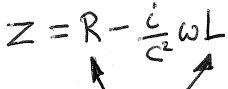 Z = R - i/c² ωL